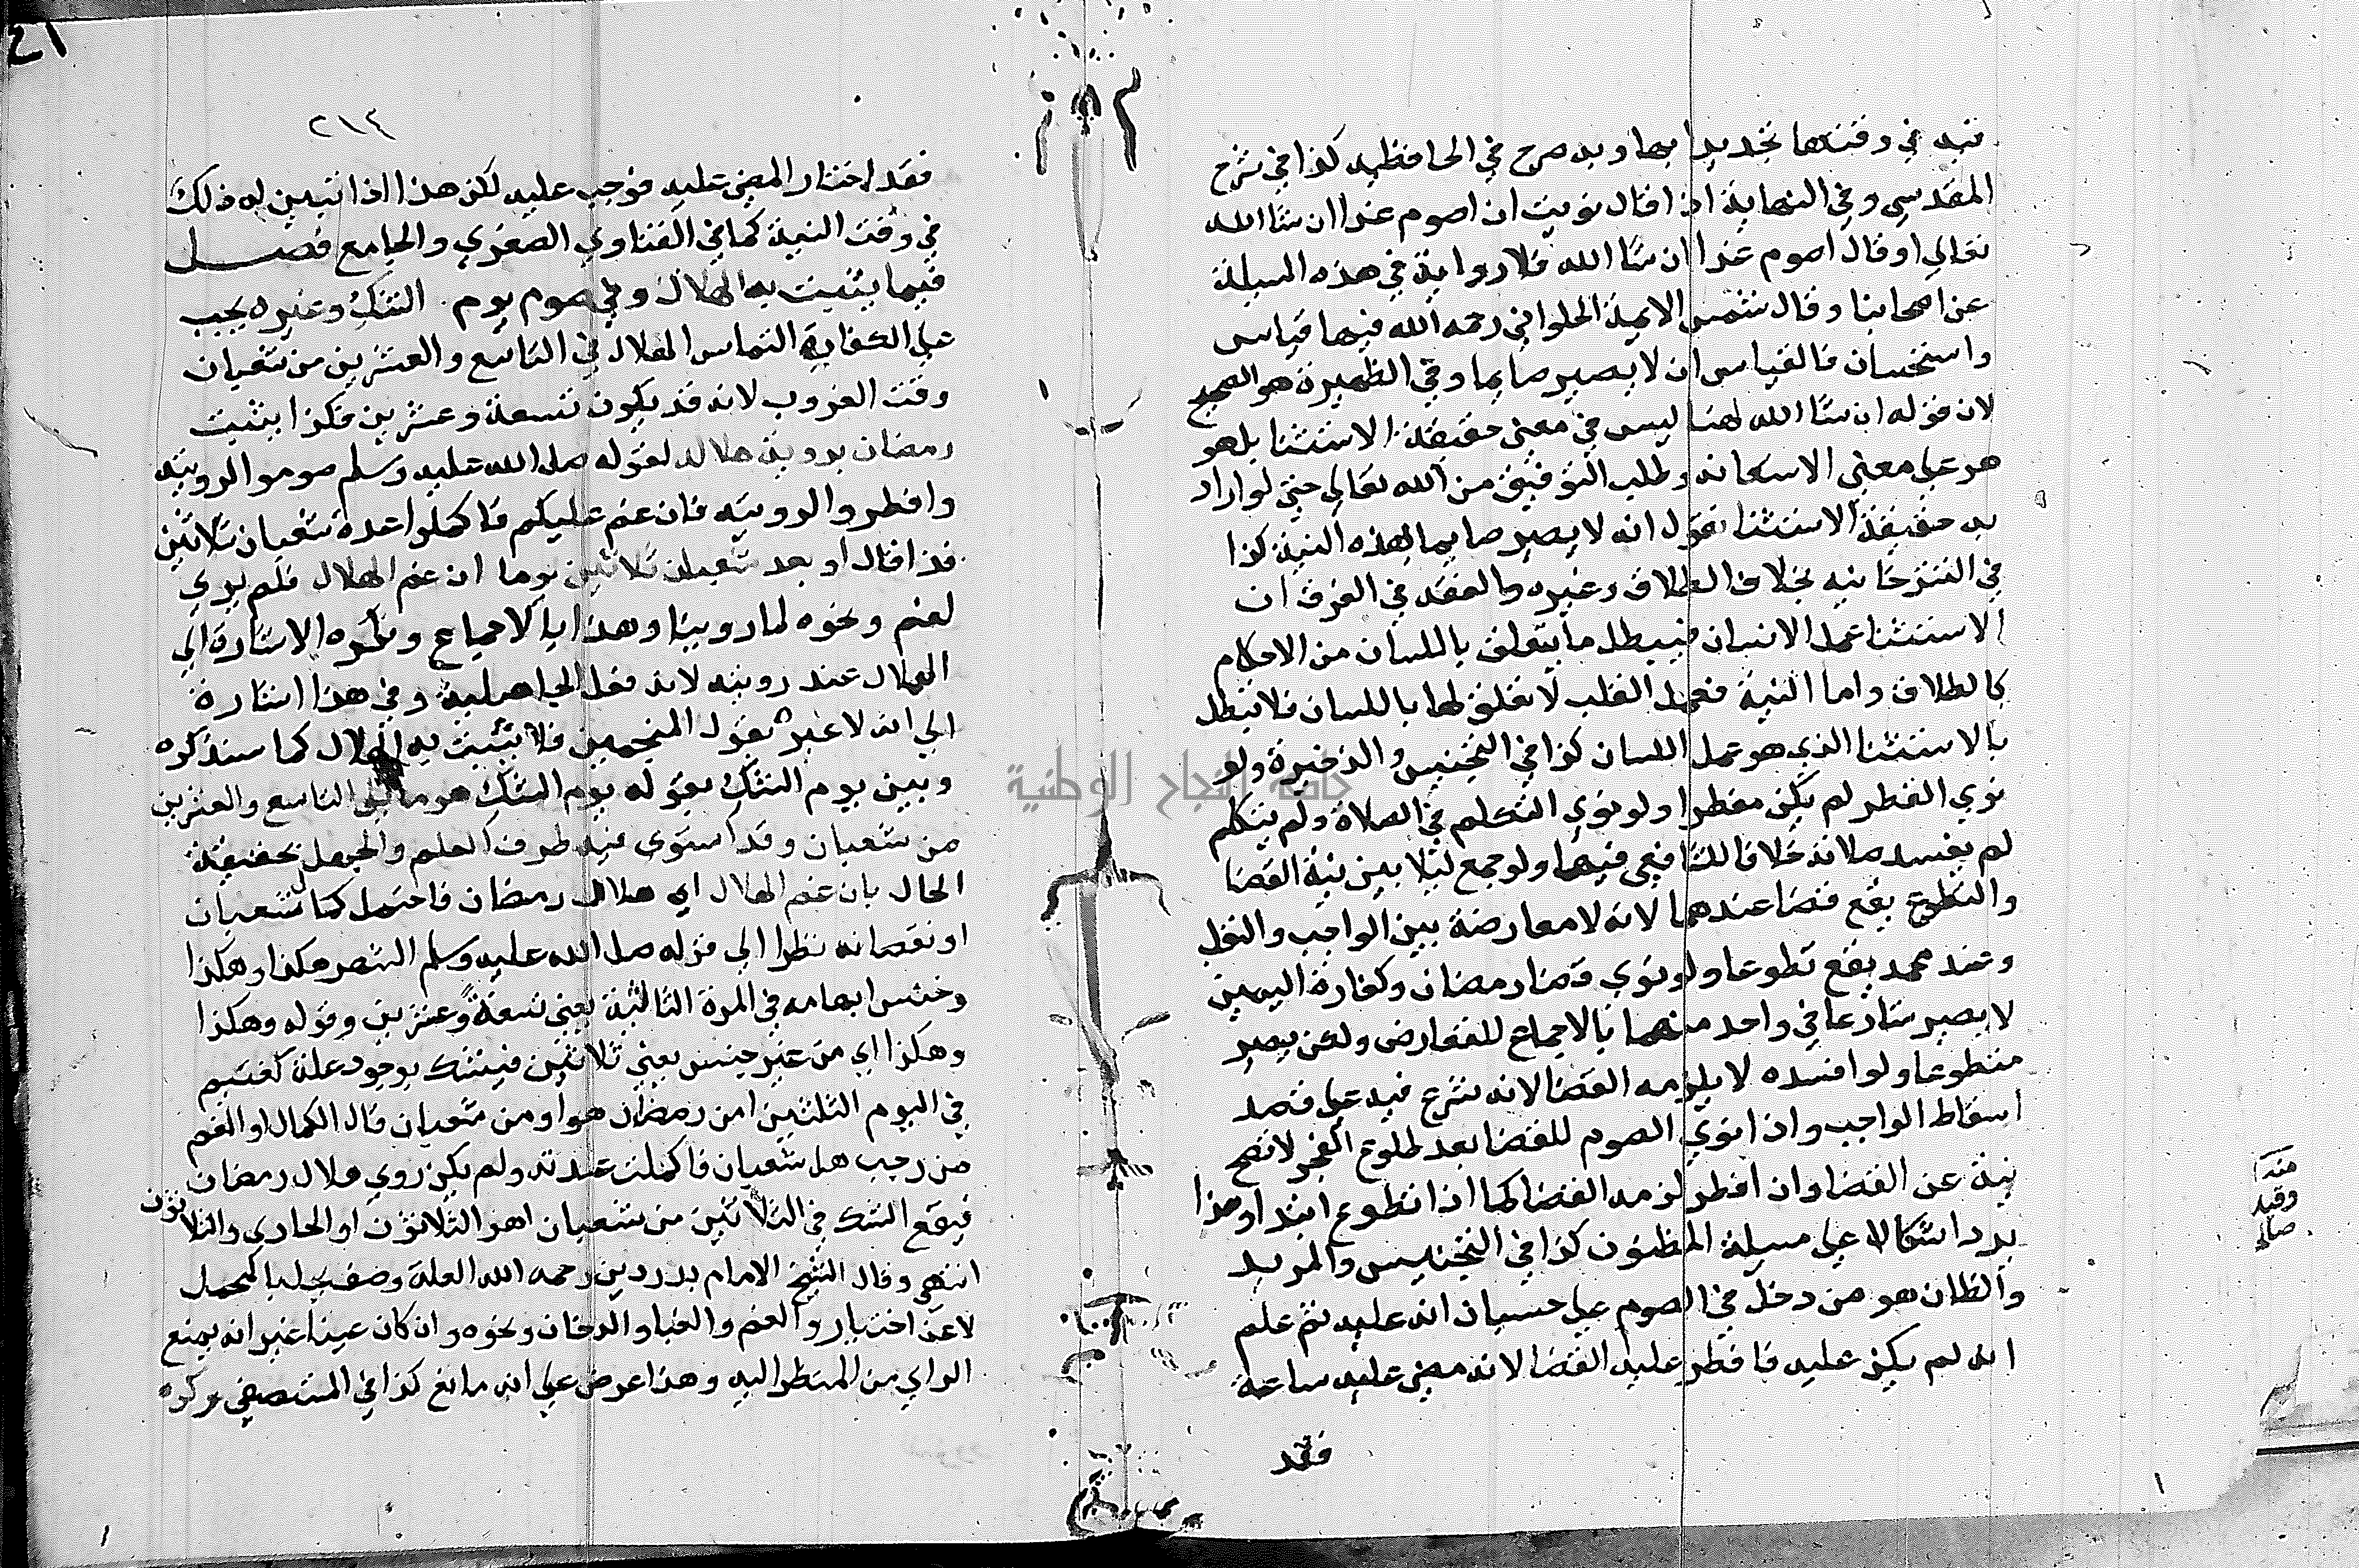 نيه في وقتها تجديدا بها وبه صرح في الحافظيه كذا في شرح
المقدسي وفي النهاية اذا قال نويت ان اصوم غدا ان شا الله
تعالي او قال اصوم غدا ان شا الله فلا رواية في هذه المسيلة
عن اصحابنا وقال شمس الايمة الحلواني رحمه الله فيها قياس
واستحسان فالقياس ان لا يصير صايما وفي الظهيرة هو الصحيح
لان قوله ان شا الله هنا ليس في معني حقيقة الاستثنا بل هو
هو علي معني الاستعانه وطلب التوفيق من الله تعالي حتي لو اراد
به حقيقة الاستثنا نقول انه لا يصير صايما بهذه النية كذا
في التترخانيه بخلاف الطلاق وغيره والفقه في الفرق ان
الاستثنا عمل الانسان فيبطل ما يتعلق باللسان من الاحكام
كالطلاق واما النية فعمل القلب لا تعلق لها باللسان فلا تبطل
بالاستثنا الذي هو عمل اللسان كذا في التجنيس والذخيرة ولو
نوي الفطر لم يكن مفطرا ولو نوي التكلم في الصلاة ولم يتكلم
لم يفسد صلاته خلافا للشافعي فيها ولو جمع ليلا بين نية القضا
والتطوع يقع قضا عندهما لانه لا معارضة بين الواجب والنفل
وعند محمد يقع تطوعا ولو نوي قضا رمضان وكفارة اليمين
لا يصير شارعا في واحد منهما بالاجماع للتعارض ولكن يصير
متطوعا ولو افسده لا يلزمه القضا لانه شرع فيه علي قصد
اسقاط الواجب واذا نوي الصوم للقضا بعد طلوع الفجر لا تصح
نية عن القضا وان افطر لزمه القضا كما اذا تطوع ابتدا وهذا
يرد اشكالا علي مسيلة المظنون كذا في التجنيس والمزيد
والظان هو من دخل في الصوم علي حسبان انه عليه ثم علم
انه لم يكن عليه فافطر عليه القضا لانه مضي عليه ساعة
فقد
منه
وقيد
٢١٤
فقد اختار المضي عليه فوجب عليه لكن هذا اذا تبين له ذلك
في وقت النية كما في الفتاوي الصغري والجامع فصل
فيما يثبت به الهلال وفي صوم يوم الشك وغيره يجب
علي الكفاية التماس الهلال في التاسع والعشرين من شعبان
وقت الغروب لانه قد يكون تسعة وعشرين فكذا يثبت
رمضان بروية هلاله لقوله صلي الله عليه وسلم صوموا لرويته
وافطروا لرويته فان غم عليكم فاكملوا عدة شعبان ثلاثين
فذا قال او بعد شعبان ثلاثين يوما ان غم الهلال فلم يري
لغيم ونحوه لما روينا وهذا بالاجماع وتكره الاشارة الي
الهلال عند رويته لانه فعل الجاهلية وفي هذا اشارة
الي انه لا عبرة بقول المنجمين فلا يثبت به الهلال كما سنذكره
وبين يوم الشك بقوله يوم الشك هو ما يلي التاسع والعشرين
من شعبان وقد استوي فيه طرف العلم والجهل بحقيقة
الحال بان غم الهلال اي هلال رمضان فاحتمل كمال شعبان
او نقصانه نظرا الي قوله صلي الله عليه وسلم الشهر هكذا وهكذا
وخنس ابهامه في المرة الثالثة يعني تسعة وعشرين وقوله وهكذا
وهكذا اي من غير خنس يعني ثلاثين فيشك بوجود علة كغيم
في اليوم الثلاثين امن رمضان هو او من شعبان قال الكمال او الغم
من رجب هل شعبان فاكملت عدته ولم يكن روي هلال رمضان
فيقع الشك في الثلاثين من شعبان اهو الثلاثون او الحادي والثلاثون
انتهي وقال الشيخ الامام بدر دين رحمه الله العلة وصف
لا عن اختيار والغم والغبار والدخان ونحوه وان كان عينا غير انه يمنع
الراي من المنظر اليه وهذا عرض علي انه مانع كذا في المستصفي